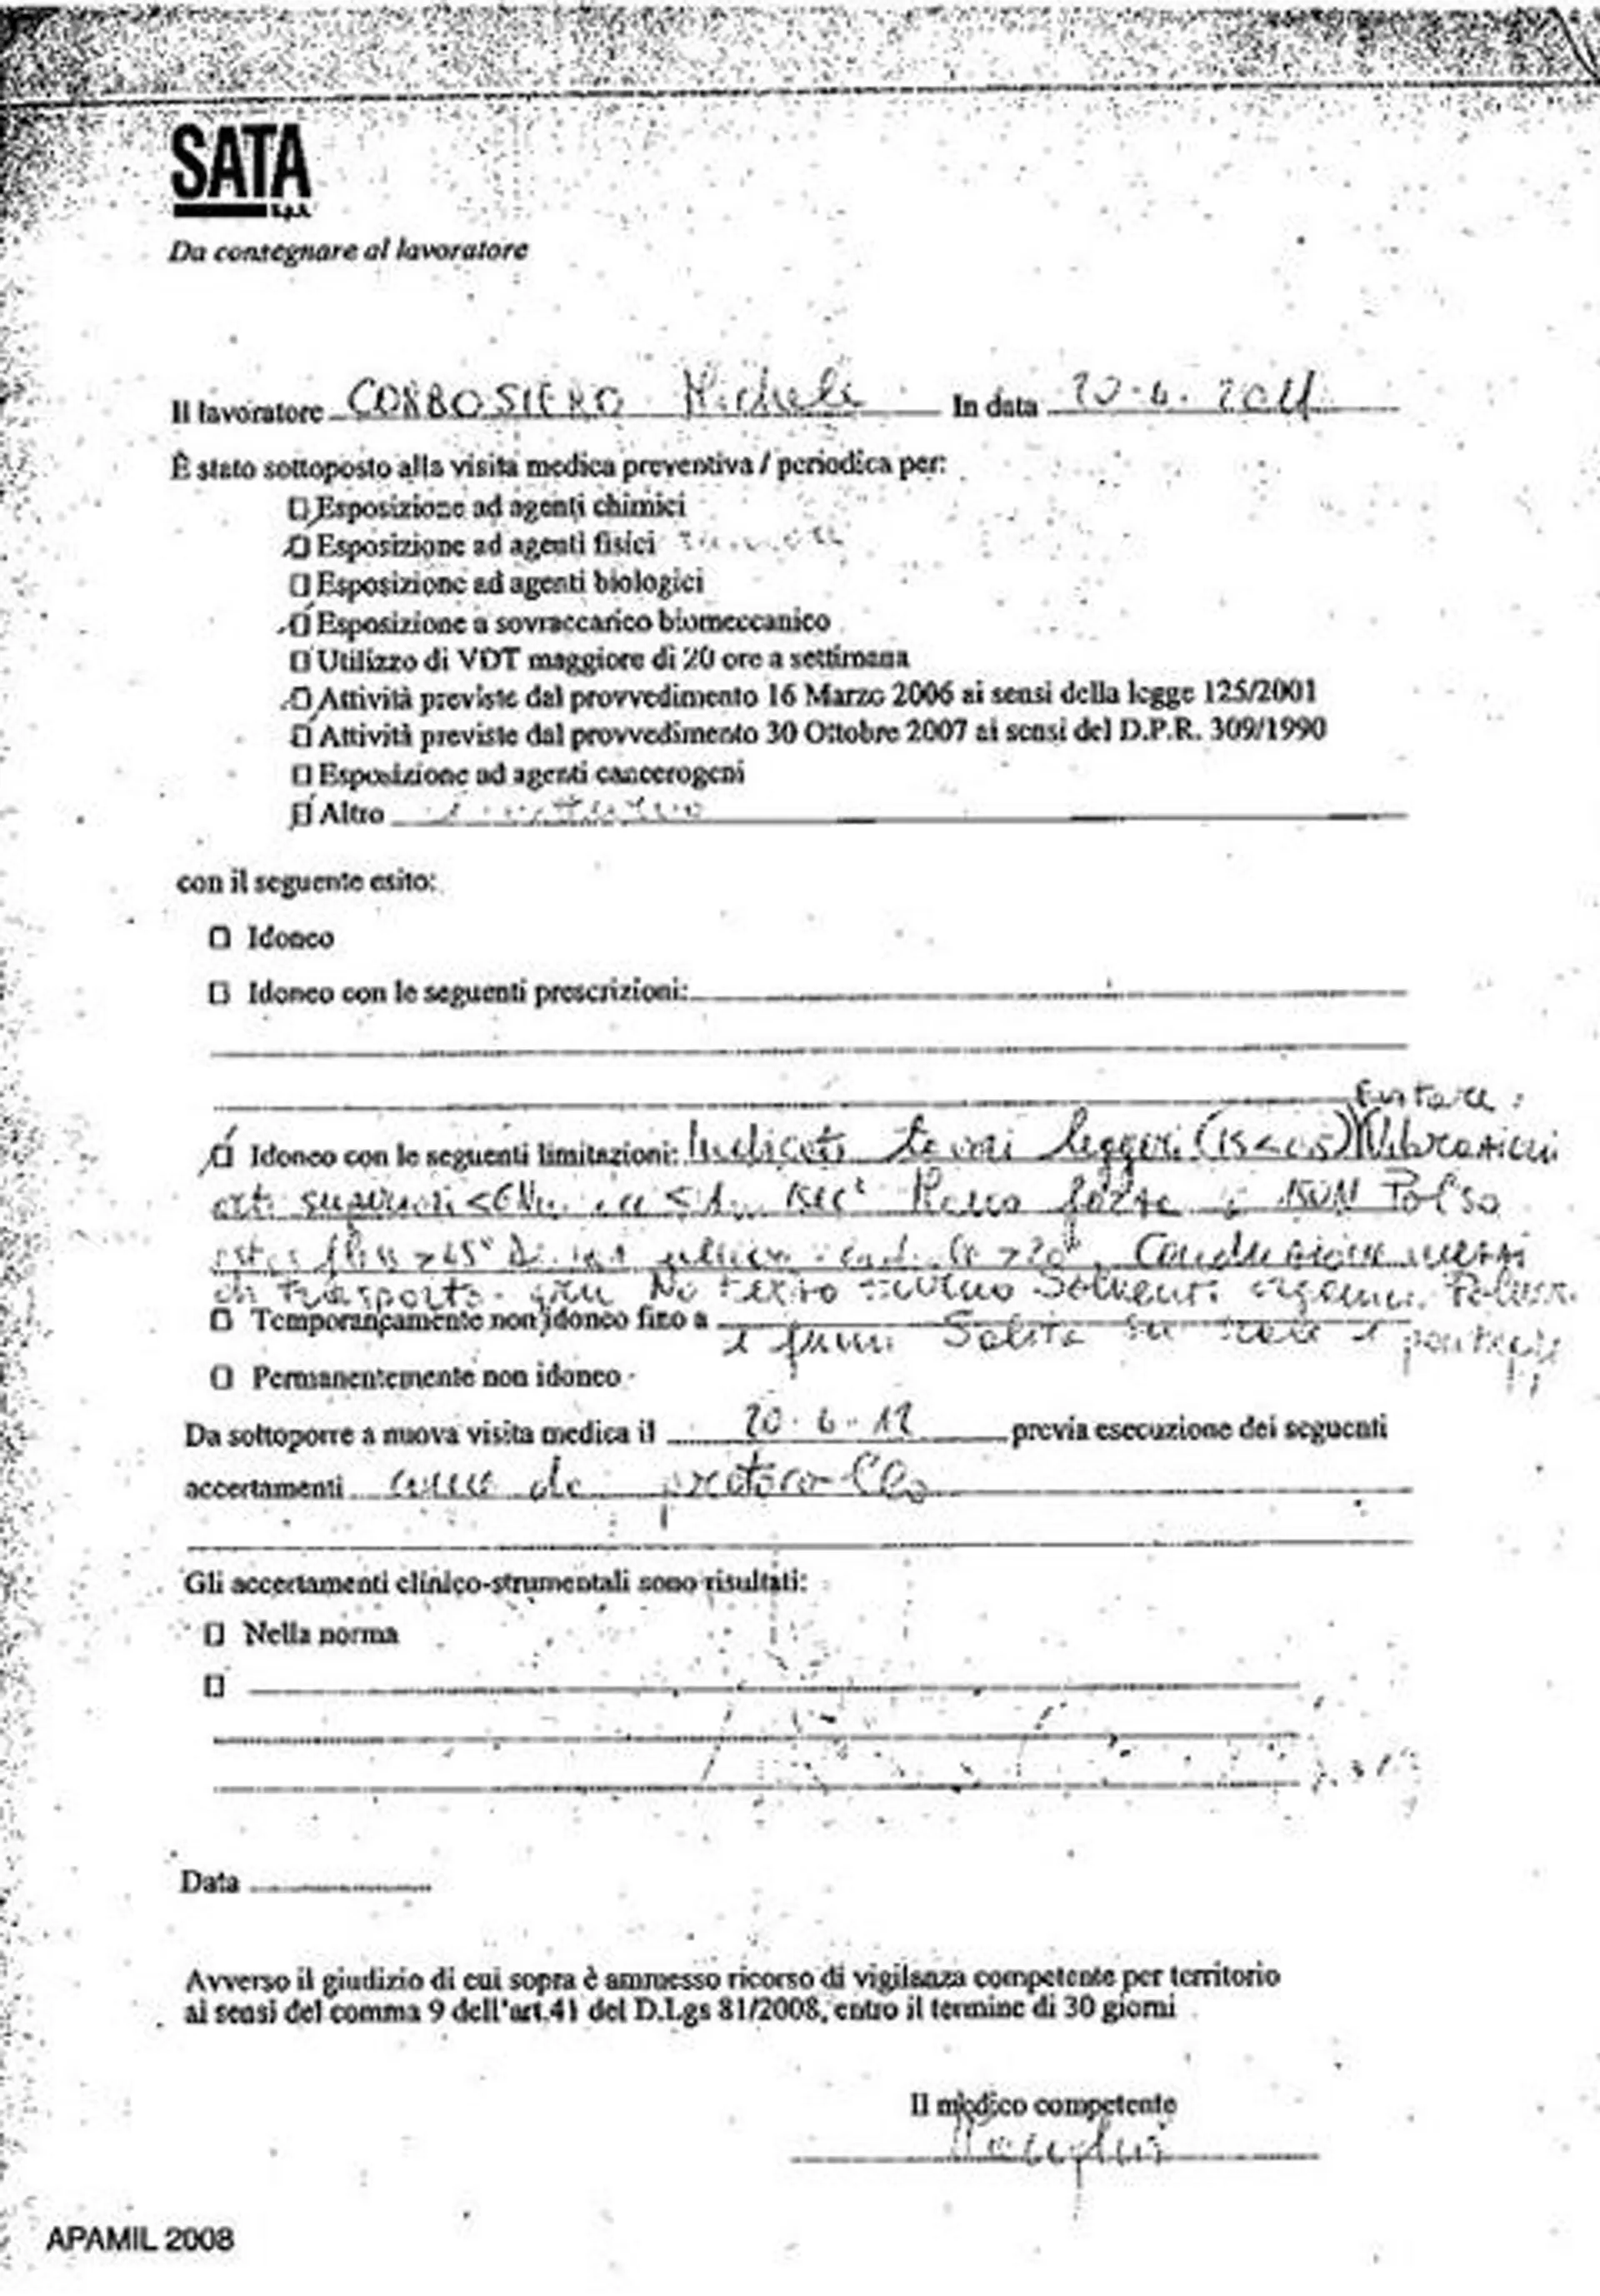 SATA
S.p.A.
Da consegnare al lavoratore
Il lavoratore CORBOSIERO Michele In data 20-6-2011
È stato sottoposto alla visita medica preventiva / periodica per:
Esposizione ad agenti chimici
Esposizione ad agenti fisici
Esposizione ad agenti biologici
Esposizione a sovraccarico biomeccanico
Utilizzo di VDT maggiore di 20 ore a settimana
Attività previste dal provvedimento 16 Marzo 2006 ai sensi della legge 125/2001
Attività previste dal provvedimento 30 Ottobre 2007 ai sensi del D.P.R. 309/1990
Esposizione ad agenti cancerogeni
Altro
con il seguente esito:
Idoneo
Idoneo con le seguenti prescrizioni:
Evitare:
Idoneo con le seguenti limitazioni: Indicati lavori leggeri Vibrazioni
arti superiori Polso
Conduzione mezzi
di trasporto - gru No terzo turno Solventi organici Polveri
Temporaneamente non idoneo fino a
e fumi Salita su scale e ponteggi
Permanentemente non idoneo
Da sottoporre a nuova visita medica il 20-6-12 previa esecuzione dei seguenti
accertamenti come da protocollo
Gli accertamenti clinico-strumentali sono risultati:
Nella norma
Data
Avverso il giudizio di cui sopra è ammesso ricorso di vigilanza competente per territorio
ai sensi del comma 9 dell'art.41 del D.Lgs 81/2008, entro il termine di 30 giorni
Il medico competente
APAMIL 2008